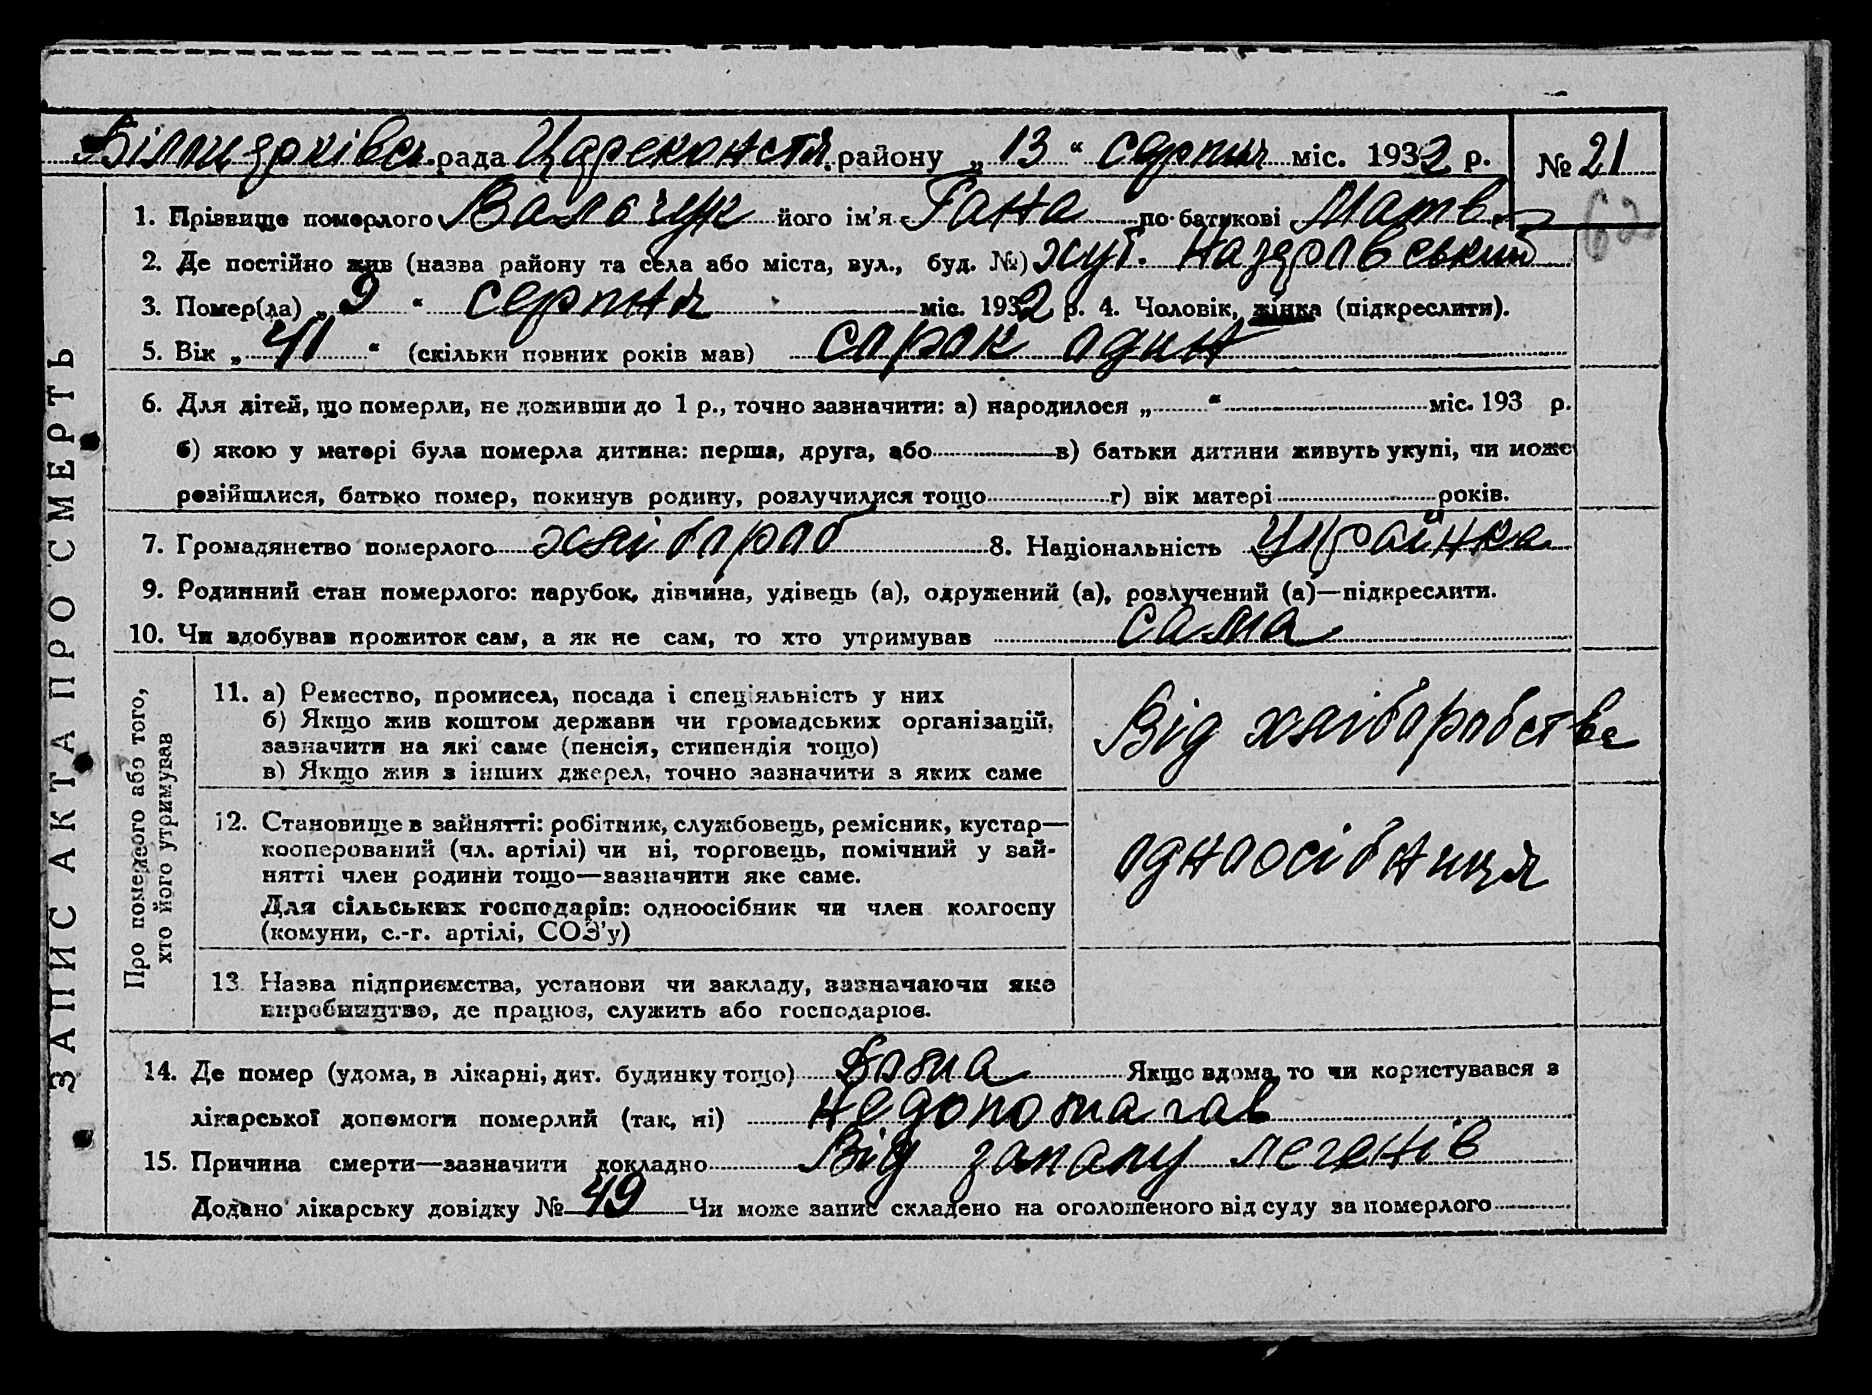 рада Цареконстян. району „13" серпня міс. 1932 р. № 21
1. Прізвище померлого Валочук його ім'я Гана по-батькові Матв
2. Де постійно жив (назва району та села або міста, вул., буд. №) хут.
3. Помер(ла) „9" серпня міс. 1932 р. 4. Чоловік, жінка (підкреслити).
5. Вік „41" (скільки повних років мав) сорок один
6. Для дітей, що померли, не доживши до 1 р., точно зазначити: а) народилося „ " міс. 193 р.
б) якою у матері була померла дитина: перша, друга, або в) батьки дитини живуть укупі, чи може
розійшлися, батько помер, покинув родину, розлучилися тощо г) вік матері років.
7. Громадянство померлого хлібороб 8. Національність Украйнка
9. Родинний стан померлого: парубок, дівчина, удівець (а), одружений (а), розлучений (а)—підкреслити.
10. Чи здобував прожиток сам, а як не сам, то хто утримував сама
ЗАПИС АКТА ПРО СМЕРТЬ
Про померлого або того,
хто його утримував
11. а) Ремество, промисел, посада і спеціяльність у них
б) Якщо жив коштом держави чи громадських організацій,
зазначити на які саме (пенсія, стипендія тощо)
в) Якщо жив з інших джерел, точно зазначити з яких саме
Від хліборобства
12. Становище в зайнятті: робітник, службовець, ремісник, кустар—
кооперований (чл. артілі) чи ні, торговець, помічний у зай-
нятті член родини тощо—зазначити яке саме.
Для сільських господарів: одноосібник чи член колгоспу
(комуни, с.-г. артілі, СОЗ'у)
одноосібниця
13. Назва підприємства, установи чи закладу, зазначаючи яке
виробництво, де працює, служить або господарює.
14. Де помер (удома, в лікарні, дит. будинку тощо) Дома Якщо вдома, то чи користувався з
лікарської допомоги померлий (так, ні) недопомагав
15. Причина смерти—зазначити докладно Від запалу легенів
Додано лікарську довідку № 49 Чи може запис складено на оголошеного від суду за померлого